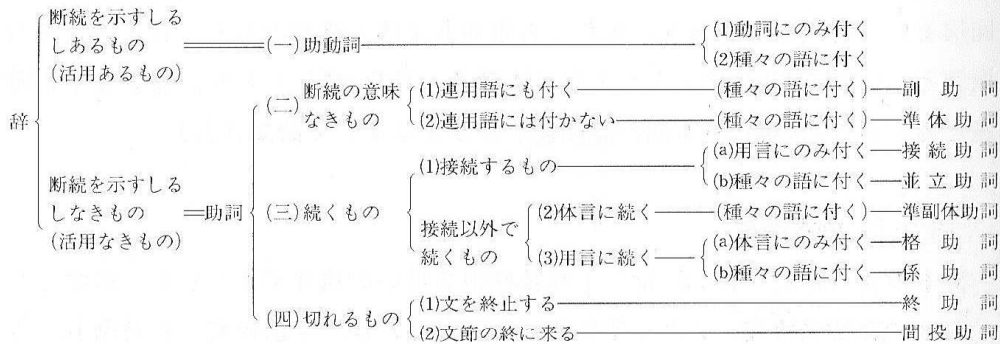 辞
断続を示すしる
しあるもの
(活用あるもの)
(一)助動詞
(1)動詞にのみ付く
(2)種々の語に付く
断続を示すしる
しなきもの
(活用なきもの)
助詞
(二)断続の意味
なきもの
(1)連用語にも付く (種々の語に付く) 副助詞
(2)連用語には付かない (種々の語に付く) 準体助詞
(三)続くもの
(1)接続するもの
(a)用言にのみ付く 接続助詞
(b)種々の語に付く 並立助詞
接続以外で
続くもの
(2)体言に続く (種々の語に付く) 準副体助詞
(3)用言に続く
(a)体言にのみ付く 格助詞
(b)種々の語に付く 係助詞
(四)切れるもの
(1)文を終止する 終助詞
(2)文節の終に来る 間投助詞